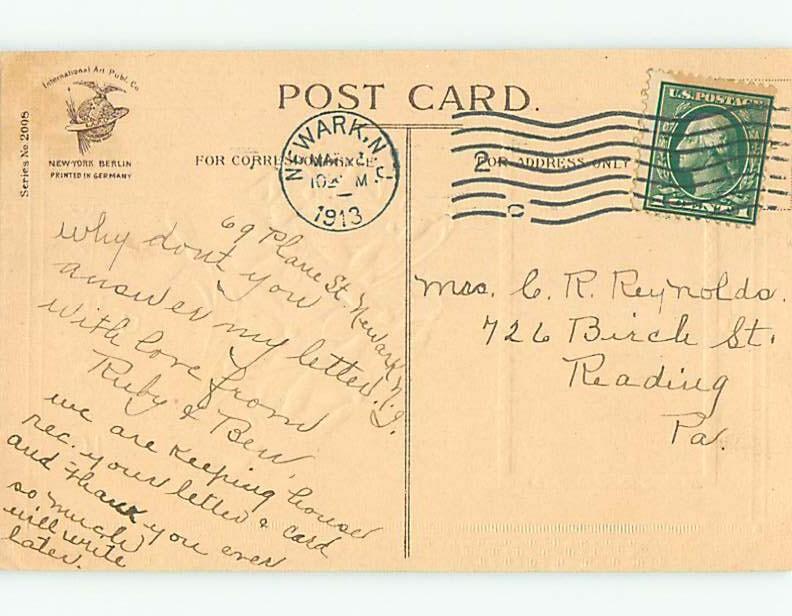 International Art Publ. Co.
NEW-YORK BERLIN
PRINTED IN GERMANY
Series No. 2008
POST CARD.
FOR CORRESPONDENCE
FOR ADDRESS ONLY
NEWARK, N.J.
1913
2
U.S. POSTAGE
1 CENT 1
69 Plane St. Newark N.J.
why dont you
answer my letter.
With love from
Ruby & Ben
we are keeping house
rec. your letter & card
and thank you ever
so much
will write
later.
Mrs. C. R. Reynolds.
726 Birch St.
Reading
Pa.